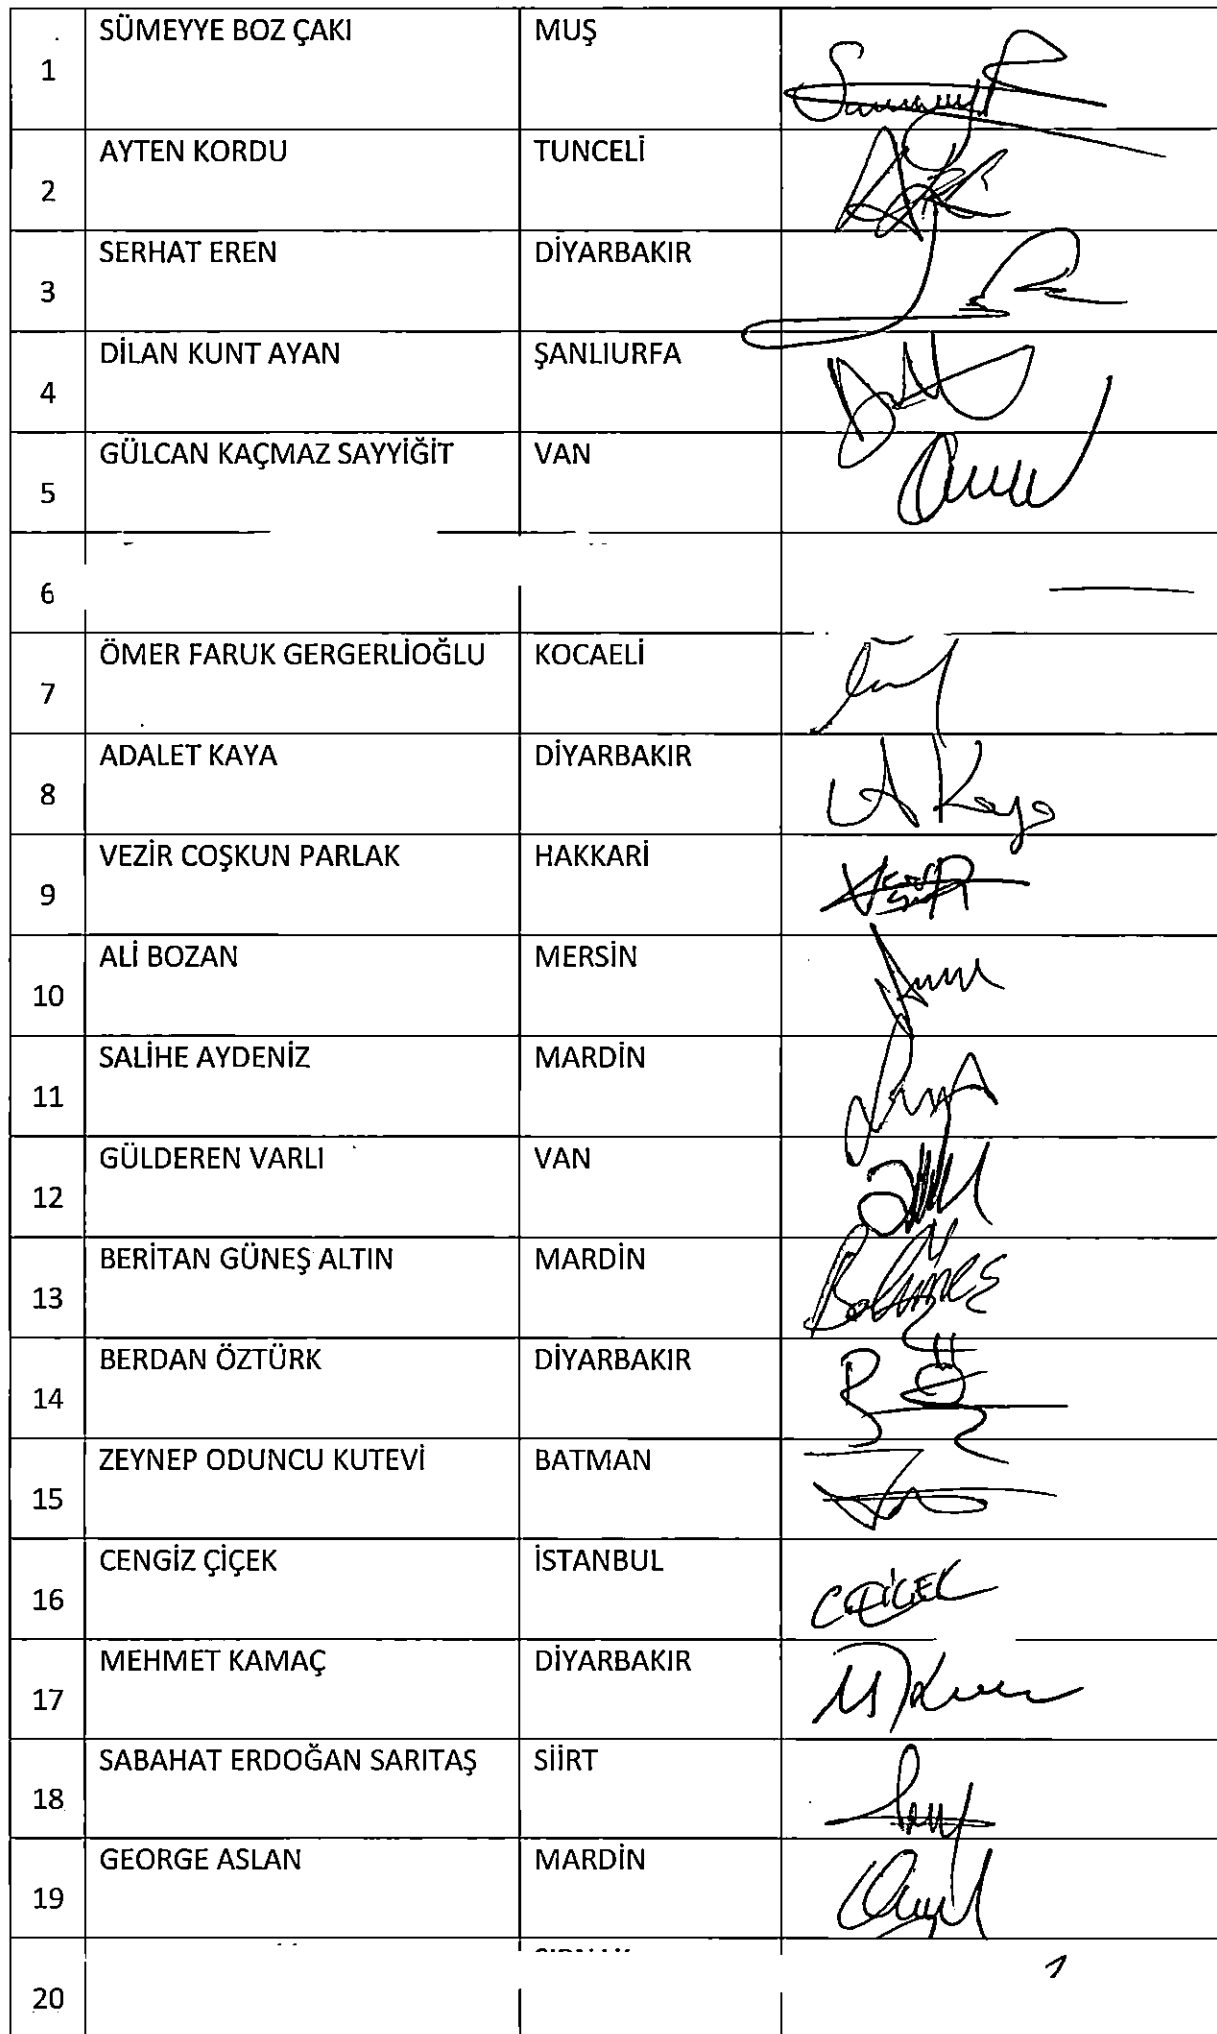 1 SÜMEYYE BOZ ÇAKI MUŞ
2 AYTEN KORDU TUNCELİ
3 SERHAT EREN DİYARBAKIR
4 DİLAN KUNT AYAN ŞANLIURFA
5 GÜLCAN KAÇMAZ SAYYİĞİT VAN
6
7 ÖMER FARUK GERGERLİOĞLU KOCAELİ
8 ADALET KAYA DİYARBAKIR A Kaya
9 VEZİR COŞKUN PARLAK HAKKARİ
10 ALİ BOZAN MERSİN
11 SALİHE AYDENİZ MARDİN
12 GÜLDEREN VARLI VAN
13 BERİTAN GÜNEŞ ALTIN MARDİN
14 BERDAN ÖZTÜRK DİYARBAKIR
15 ZEYNEP ODUNCU KUTEVİ BATMAN
16 CENGİZ ÇİÇEK İSTANBUL
17 MEHMET KAMAÇ DİYARBAKIR
18 SABAHAT ERDOĞAN SARITAŞ SİİRT
19 GEORGE ASLAN MARDİN
20